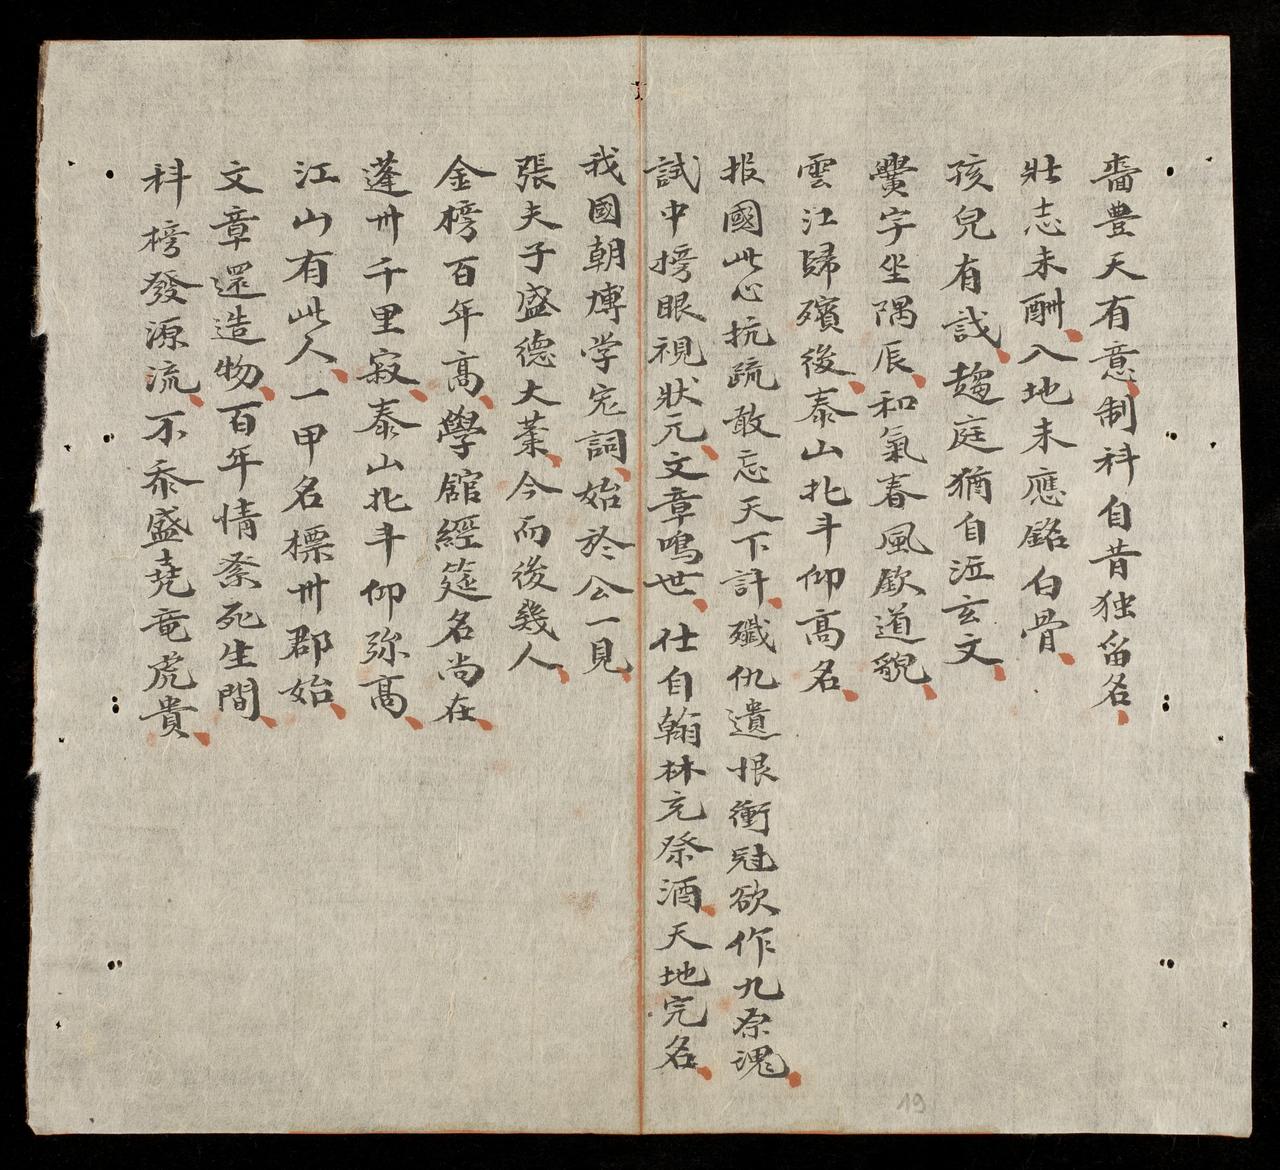 嗇豊天有意制科自昔独留名
壯志未酬入地未應銘白骨
孩兒有戝趨庭猶自泣玄文
黌字坐隅辰和氣春風欽道貌
雲江歸殯後泰山北斗仰高名
报國此心抗疏敢忘天下計殲仇遺恨衝冠欲作九泉魂
試中榜眼視狀元文章鳴世仕自翰林充祭酒天地完名
我國朝博学宏詞始於公一見
張夫子盛德大業今而後幾人
金榜百年高學館經筵名尚在
蓬卅千里寂泰山北斗仰弥高
江山有此人一甲名標卅郡始
文章還造物百年情祭死生間
科榜發源流不忝盛尭竜虎貴
19